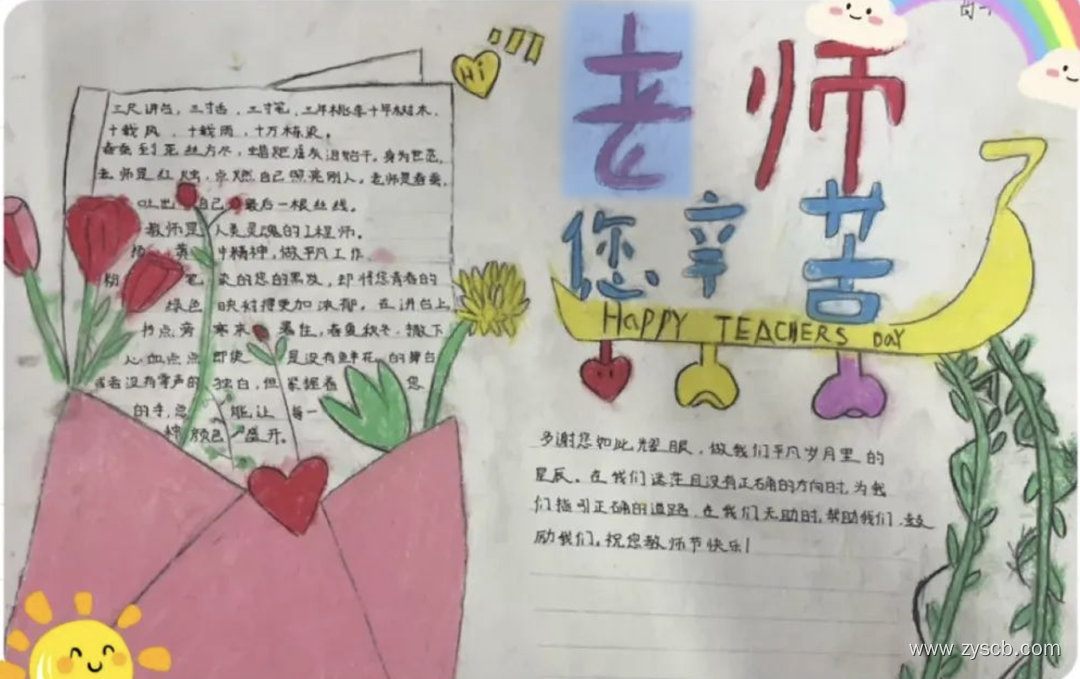 Hi
老师
您辛苦
HAPPY TEACHERS DAY
三尺讲台，三寸舌，三寸笔，三千桃李十年树木，
十载风，十载雨，十万栋梁。
春蚕到死丝方尽，蜡炬成灰泪始干。身为世范，
老师是红烛，点燃自己照亮别人，老师是春蚕，
吐出自己最后一根丝线。
教师是人类灵魂的工程师。
中精神，做平凡工作
粉笔染的您的黑发，却将您青春的
绿色映衬得更加浓郁。在讲台上，
书点旁寒来暑往，春夏秋冬，撒下
心血点点即使是没有鲜花的舞台
或者没有掌声的独白，但紧握着您
的手，总能让每一
种颜色盛开。
多谢您如此耀眼，做我们平凡岁月里的
星辰。在我们迷茫且没有正确的方向时，为我
们指引正确的道路，在我们无助时，帮助我们，鼓
励我们。祝您教师节快乐！
www.zyscb.com